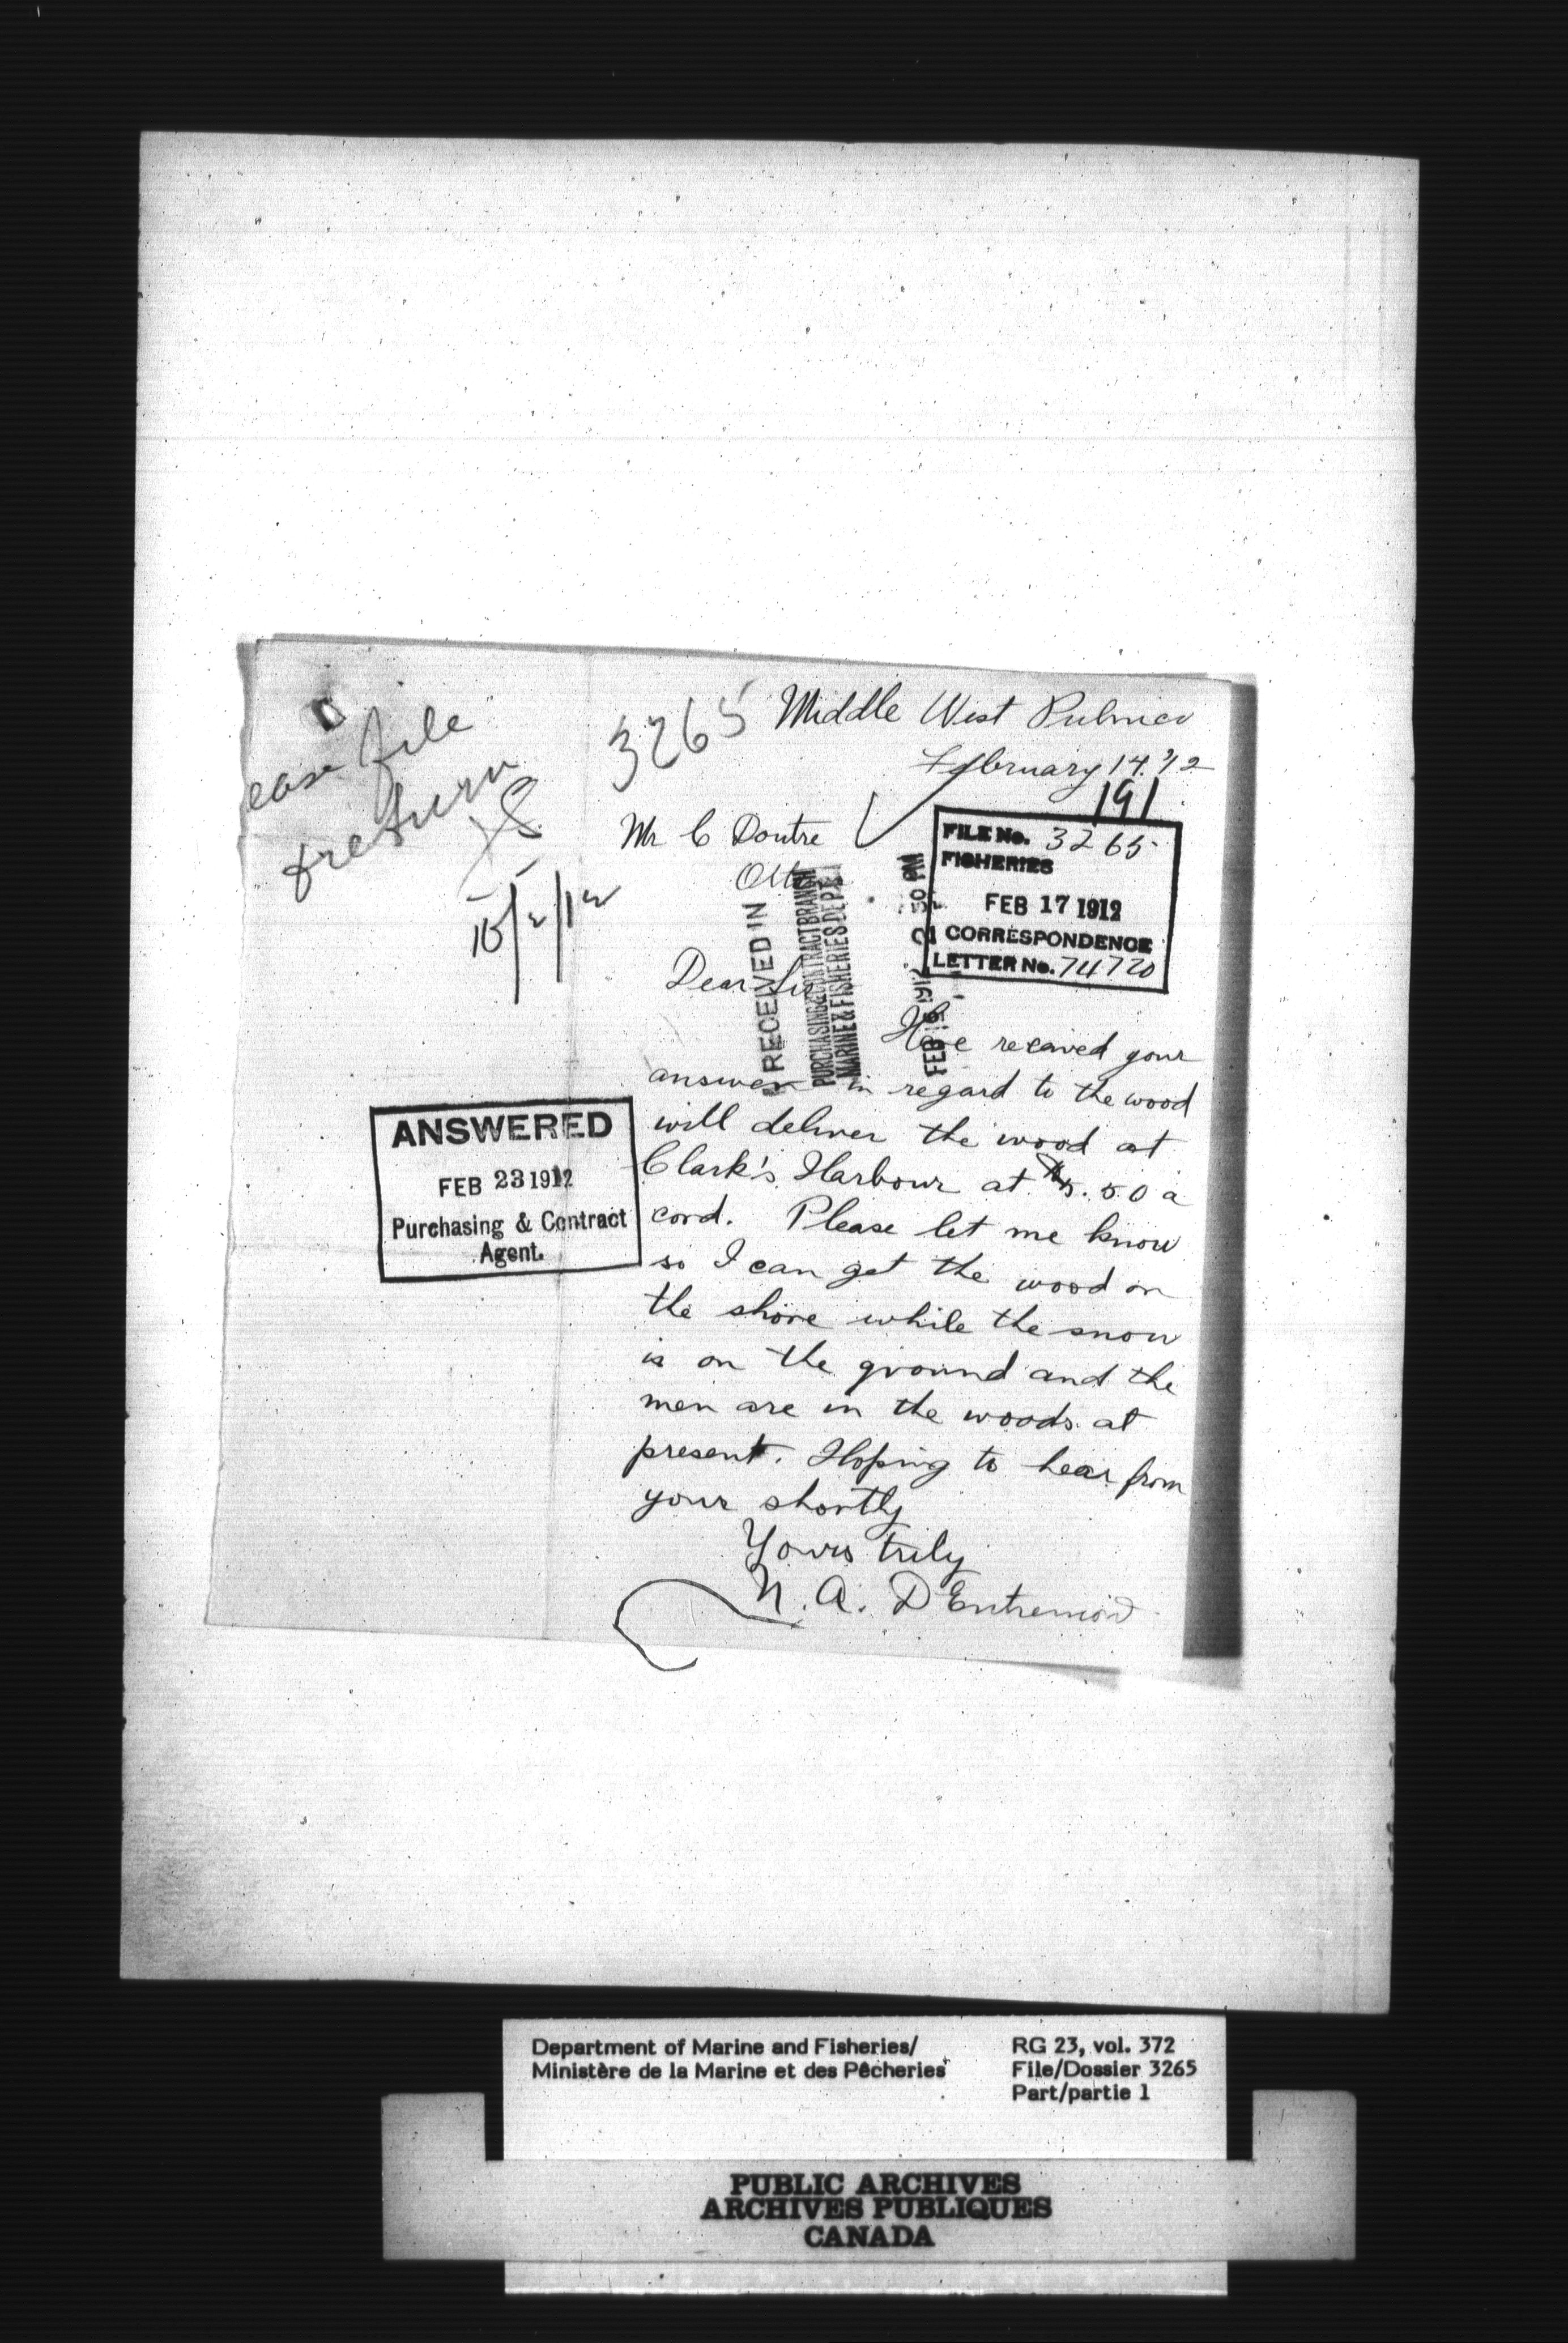 ease file
& return
15/2/12
3265
Middle West Pubnico
February 14. '12
191
Mr C Doutre
Dear Sir
FILE No. 3265
FISHERIES
FEB 17 1912
CORRESPONDENCE
LETTER No. 74720
RECEIVED IN
PURCHASING & CONTRACT BRANCH
MARINE & FISHERIES DEPT.
FEB 16 1912 2 30 PM
Have recaved your
answer in regard to the wood
will deliver the wood at
Clark's Harbour at $5.50 a
cord. Please let me know
so I can get the wood on
the shore while the snow
is on the ground and the
men are in the woods at
present. Hoping to hear from
your shortly
Yours truly
N. A. D'Entremont
ANSWERED
FEB 23 1912
Purchasing & Contract
Agent.
Department of Marine and Fisheries/
Ministère de la Marine et des Pêcheries
RG 23, vol. 372
File/Dossier 3265
Part/partie 1
PUBLIC ARCHIVES
ARCHIVES PUBLIQUES
CANADA